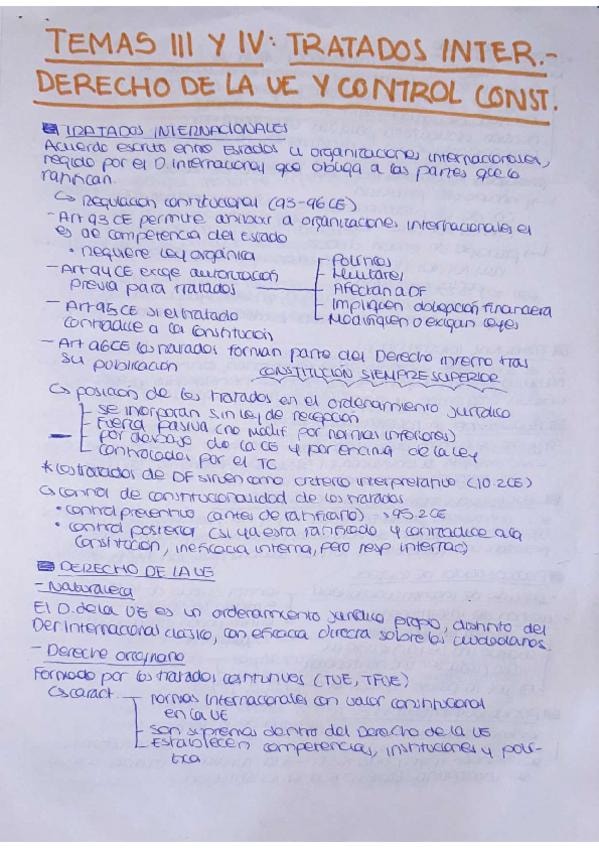 TEMAS III Y IV: TRATADOS INTER.-
DERECHO DE LA UE Y CONTROL CONST.
TRATADOS INTERNACIONALES
Acuerdo escrito entre Estados u organizaciones internacionales,
regido por el D. Internacional que obliga a las partes que lo
ratifican.
↳ Regulación constitucional (93-96CE)
- Art 93 CE permite atribuir a organizaciones internacionales el
ej de competencia del Estado
• Requiere ley orgánica
- Art 94 CE exige autorización
previa para tratados
Políticos
Militares
Afectan a DF
Impliquen obligación financiera
Modifiquen o exijan leyes
- Art 95 CE si el tratado
contradice a la Constitución
- Art 96CE los tratados forman parte del Derecho interno tras
su publicación
CONSTITUCIÓN SIEMPRE SUPERIOR
↳ posición de los tratados en el ordenamiento jurídico
se incorporan sin ley de recepción
Fuerza pasiva (no modif por normas inferiores)
por debajo de la CE y por encima de la ley
controlados por el TC
* los tratados de DF sirven como criterio interpretativo (10.2CE)
↳ control de constitucionalidad de los tratados
• control preventivo (antes de ratificarlo) → 95.2CE
• control posterior (si ya está ratificado y contradice a la
Constitución, ineficacia interna, pero resp internac)
DERECHO DE LA UE
- Naturaleza
El D. de la UE es un ordenamiento jurídico propio, distinto del
Der Internacional clásico, con eficacia directa sobre los ciudadanos.
- Derecho originario
Formado por los tratados constitutivos (TUE, TFUE)
↳ caract.
normas internacionales con valor constitucional
en la UE
son supremas dentro del Derecho de la UE
Establecen competencias, instituciones y polí-
tica